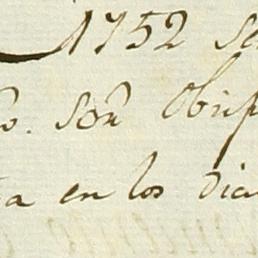 1752 se
o. Son̄ Obisp
ta en los dia